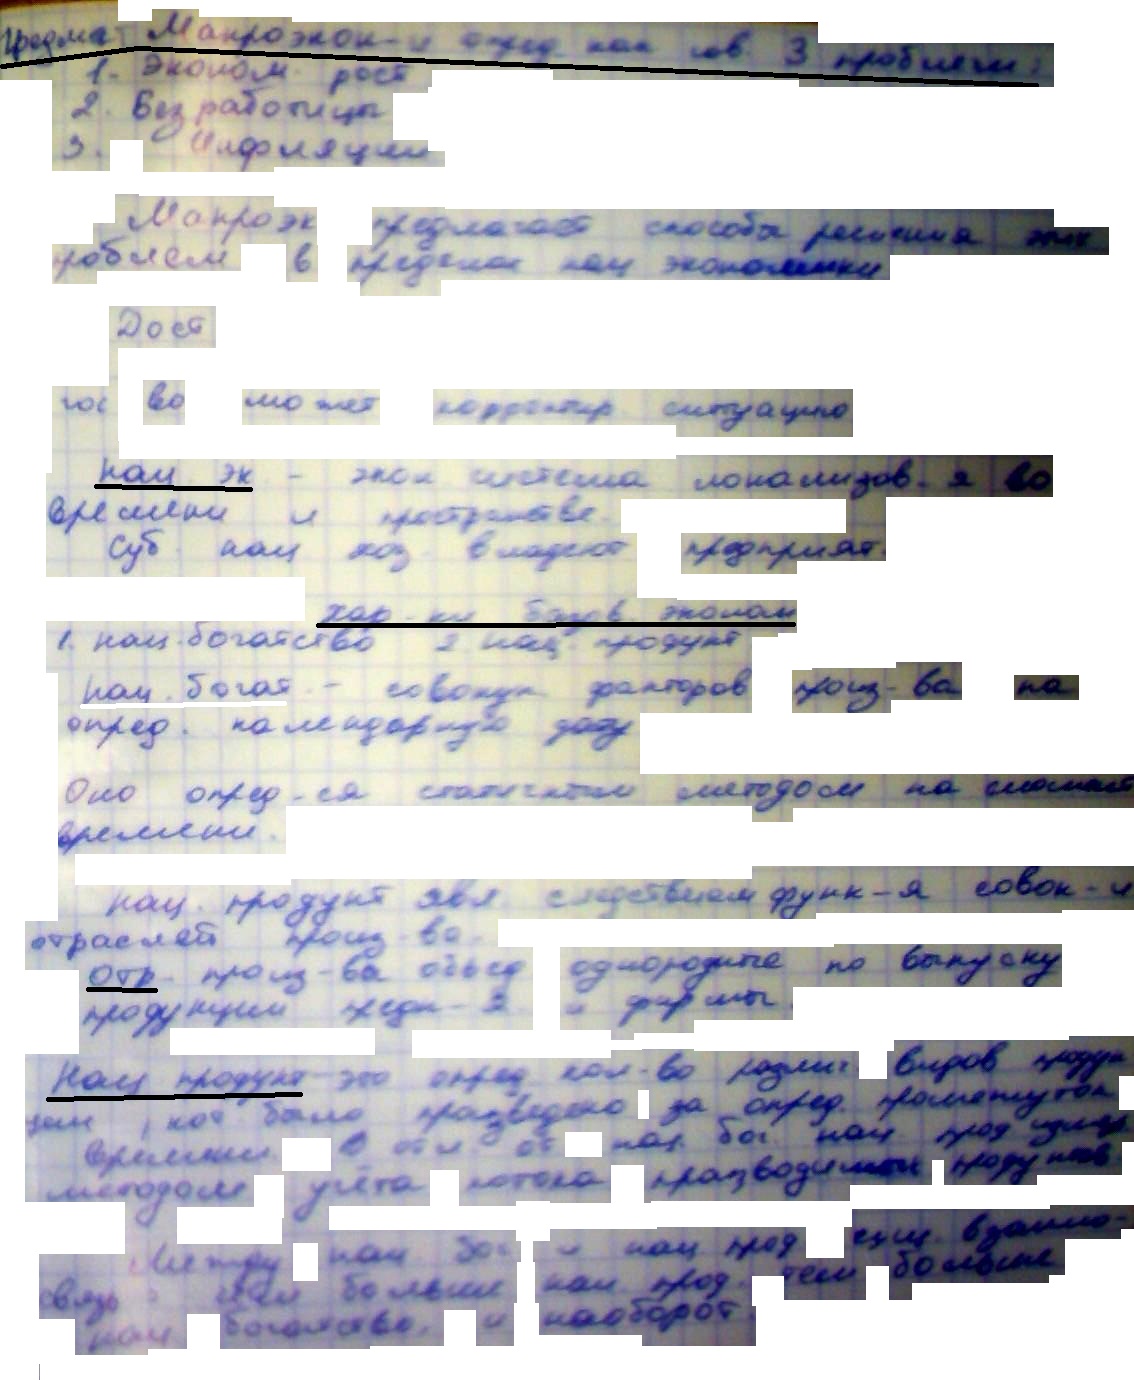 Предмет Макроэкон-и опред как сов. 3 проблем:
1. Эконом. рост
2. Безработицы
3. Инфляции
Макроэк предлагает способы решения этих
проблем в пределах нац экономики
Дост
гос во может корректир. ситуацию
Нац. эк - экон система локализов-я во
времени и пространстве.
Суб. нац хоз. владеют предприят.
Хар-ки базов эконом
1. нац.богатство 2. нац. продукт
Нац. богат. - совокуп факторов произ-ва на
опред. календарную дату
Оно опред-ся статичным методом на момент
времени.
Нац. продукт явл следствием функ-я совок-и
отраслей произ-ва.
Отр. произ-ва объед однородные по выпуску
продукции предп-я и фирмы.
Нац продукт-это опред кол-во различ. видов продук
ции, кот было произведено за опред. промежуток
времени. В отл. от нац. бог. нац прод
методом учёта потока производимых продуктов.
Между нац бог и нац прод взаимо-
связь: чем больше нац прод. тем больше
нац богатство, и наоборот.